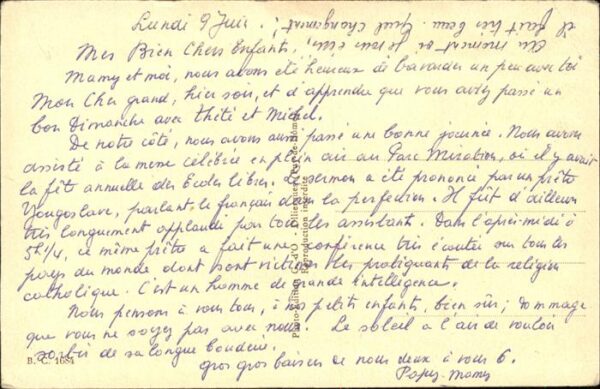 Lundi 9 Juin.
Au moment où je vous écris,
il fait très beau. Quel changement!
Mes Bien Chers Enfants,
Mamy et moi, nous avons été heureux de bavarder un peu avec toi
Mon Cher grand, hier soir, et d'apprendre que vous aviez passé un
bon Dimanche avec Thété et Michel.
De notre côté, nous avons aussi passé une bonne journée. Nous avons
assisté à la messe célébrée en plein air au Parc, où il y avait
la fête annuelle des Ecoles libres. Le sermon a été prononcé par un prêtre
Yougoslave, parlant le français dans la perfection. Il fût d'ailleurs
très longuement applaudi par tous les assistant. Dans l'après-midi à
5h 1/4, ce même prêtre a fait une conférence très écoutée sur tous les
pays du monde dont sont victimes les pratiquants de la religion
catholique. C'est un homme de grande intelligence.
Nous pensons à vous tous, à nos petits enfants, bien sûr; dommage
que vous ne soyez pas avec nous. Le soleil a l'air de vouloir
sortir de sa longue bouderie.
gros gros baisers de nous deux à vous 6.
Papy-Mamy
B. C. 1684
Reproduction interdite